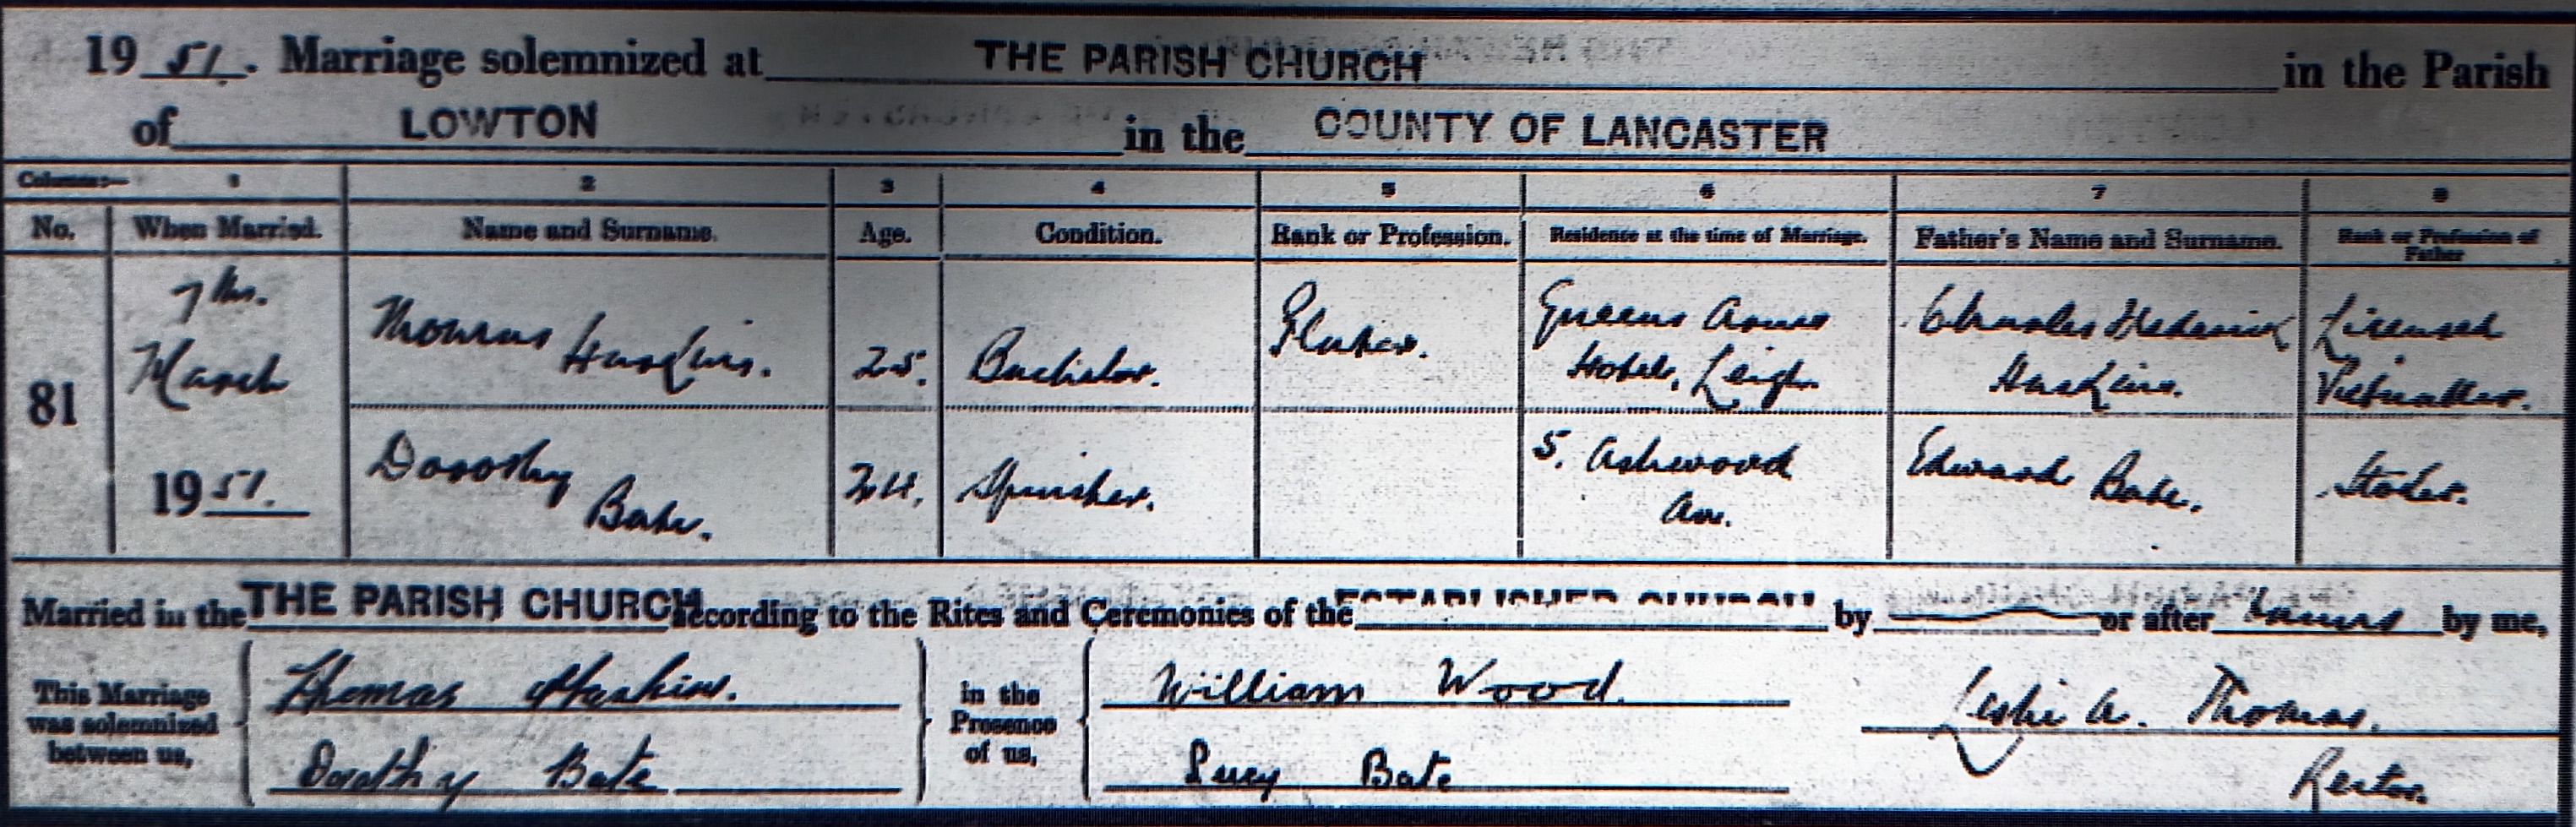 19 51. Marriage solemnized at THE PARISH CHURCH in the Parish
of LOWTON in the COUNTY OF LANCASTER
Columns:— 1 2 3 4 5 6 7 8
No. When Married. Name and Surname. Age. Condition. Rank or Profession. Residence at the time of Marriage. Father's Name and Surname. Rank or Profession of Father
81 7th. March 1951. Thomas Huskins. 25. Bachelor. Queens Arms Hotel, Leigh Charles Frederick Huskins. Licensed Victualler.
Dorothy Bate. 24. Spinster. 5. Ashwood Av. Edward Bate. Stoker.
Married in the THE PARISH CHURCH according to the Rites and Ceremonies of the ESTABLISHED CHURCH by or after banns by me,
This Marriage was solemnized between us, Thomas Huskins. Dorothy Bate in the Presence of us, William Wood. Lucy Bate
Leslie A. Thomas.
Rector.